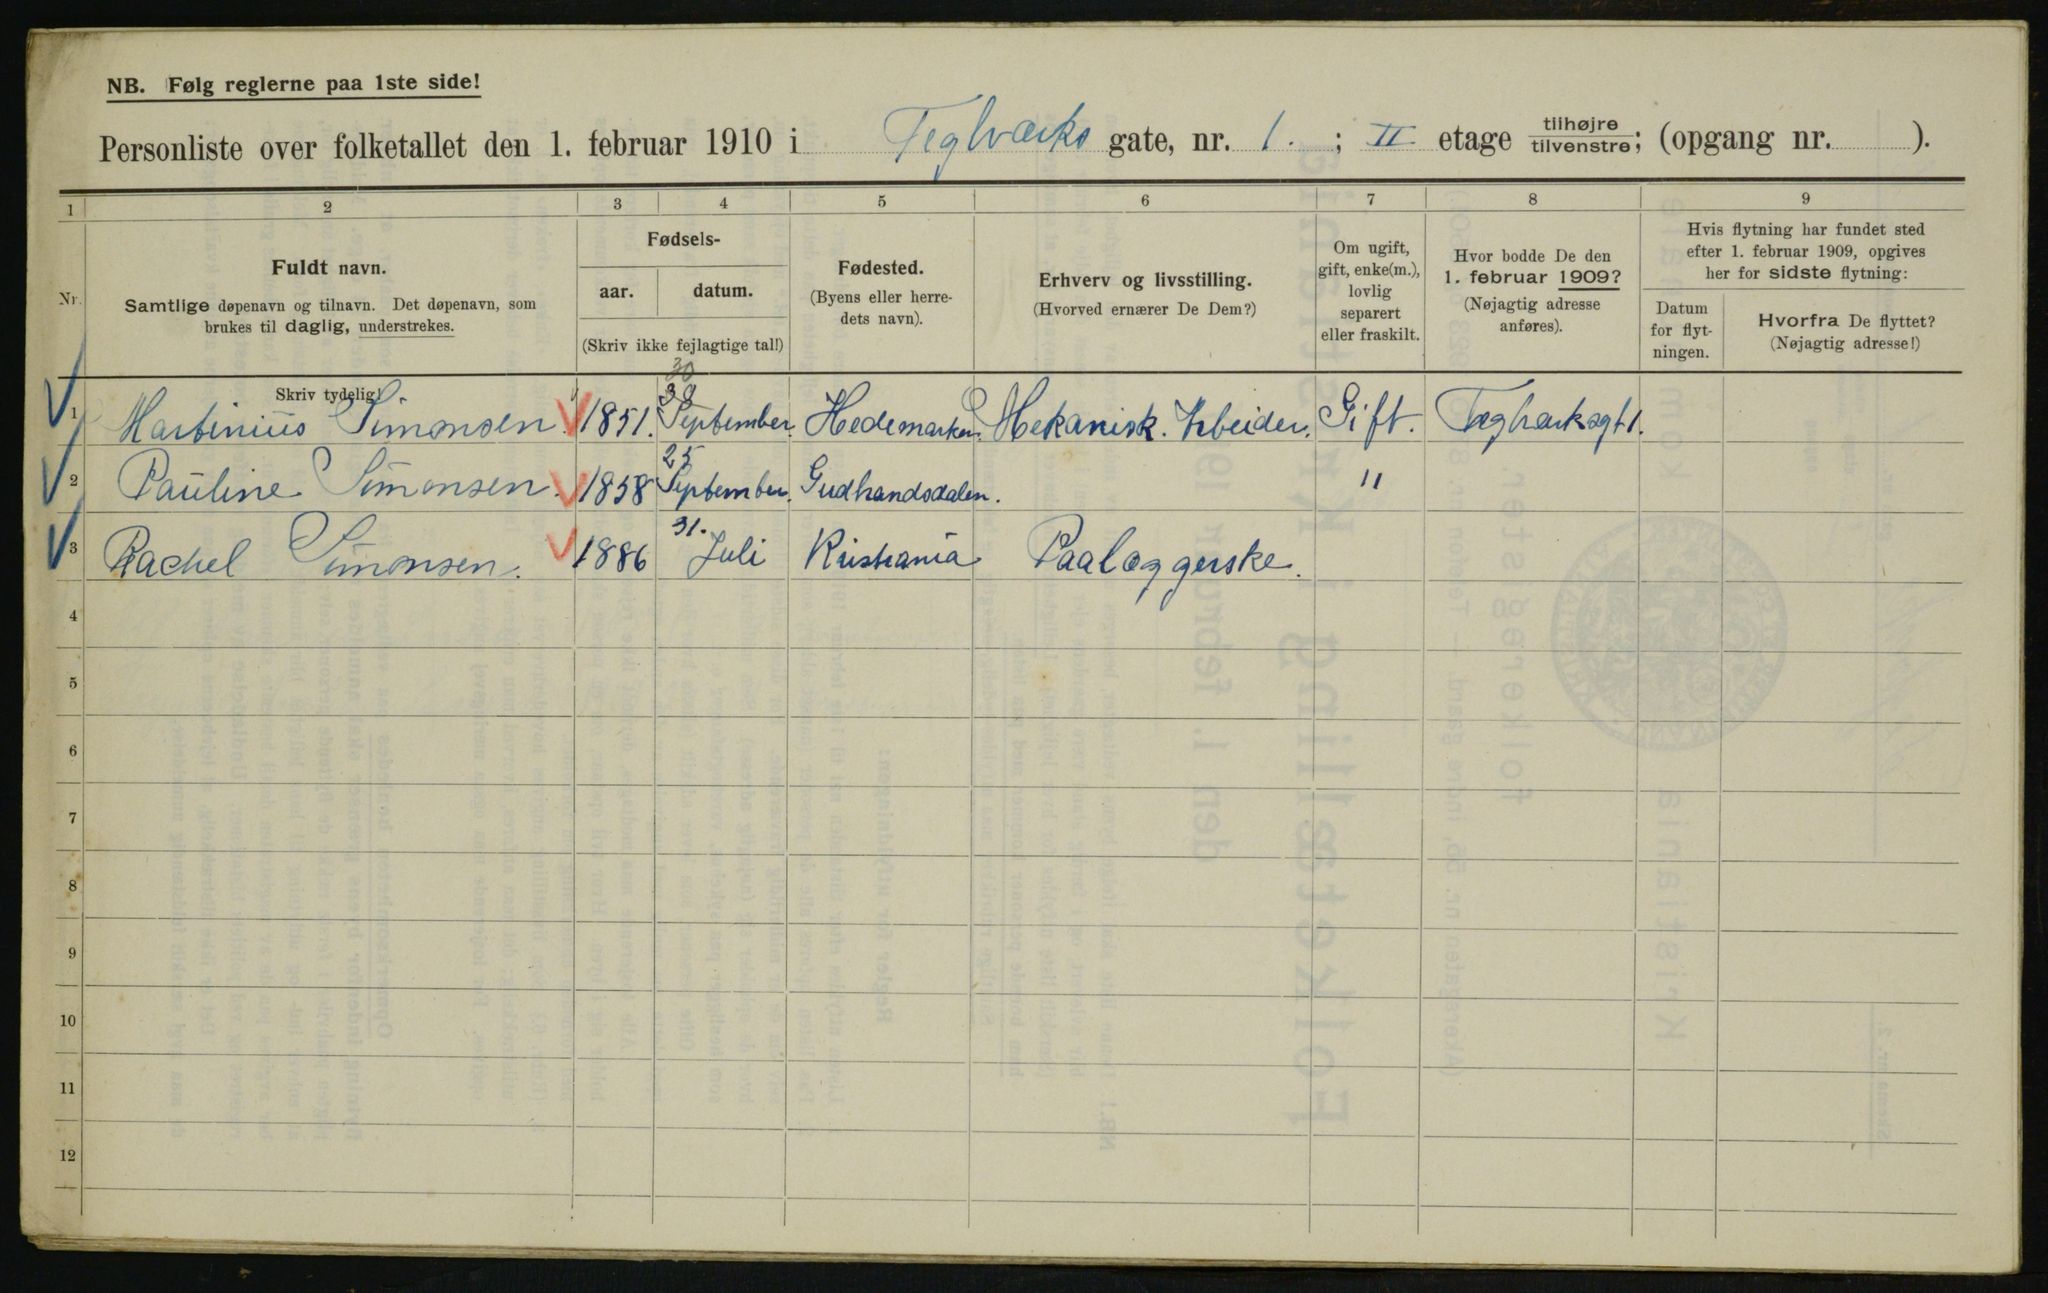 NB. Følg reglerne paa 1ste side!
Personliste over folketallet den 1. februar 1910 i Teglværks gate, nr. 1. ; II etage tilhøjre tilvenstre; (opgang nr. ).
1 2 3 4 5 6 7 8 9
Nr.
Fuldt navn.
Samtlige døpenavn og tilnavn. Det døpenavn, som
brukes til daglig, understrekes.
Skriv tydelig!
Fødsels-
aar. datum.
(Skriv ikke fejlagtige tal!)
Fødested.
(Byens eller herre-
dets navn).
Erhverv og livsstilling.
(Hvorved ernærer De Dem?)
Om ugift,
gift, enke(m.),
lovlig
separert
eller fraskilt.
Hvor bodde De den
1. februar 1909?
(Nøjagtig adresse
anføres).
Hvis flytning har fundet sted
efter 1. februar 1909, opgives
her for sidste flytning:
Datum
for flyt-
ningen.
Hvorfra De flyttet?
(Nøjagtig adresse!)
30
1 Martinius Simonsen. 1851. September. Hedemarken. Mekanisk. Arbeider. Gift. Teglværksgt 1.
25
2 Pauline Simonsen. 1858 September. Gudbrandsdalen. "
31.
3 Rachel Simonsen. 1886 Juli Kristiania Paalæggerske.
4
5
6
7
8
9
10
11
12